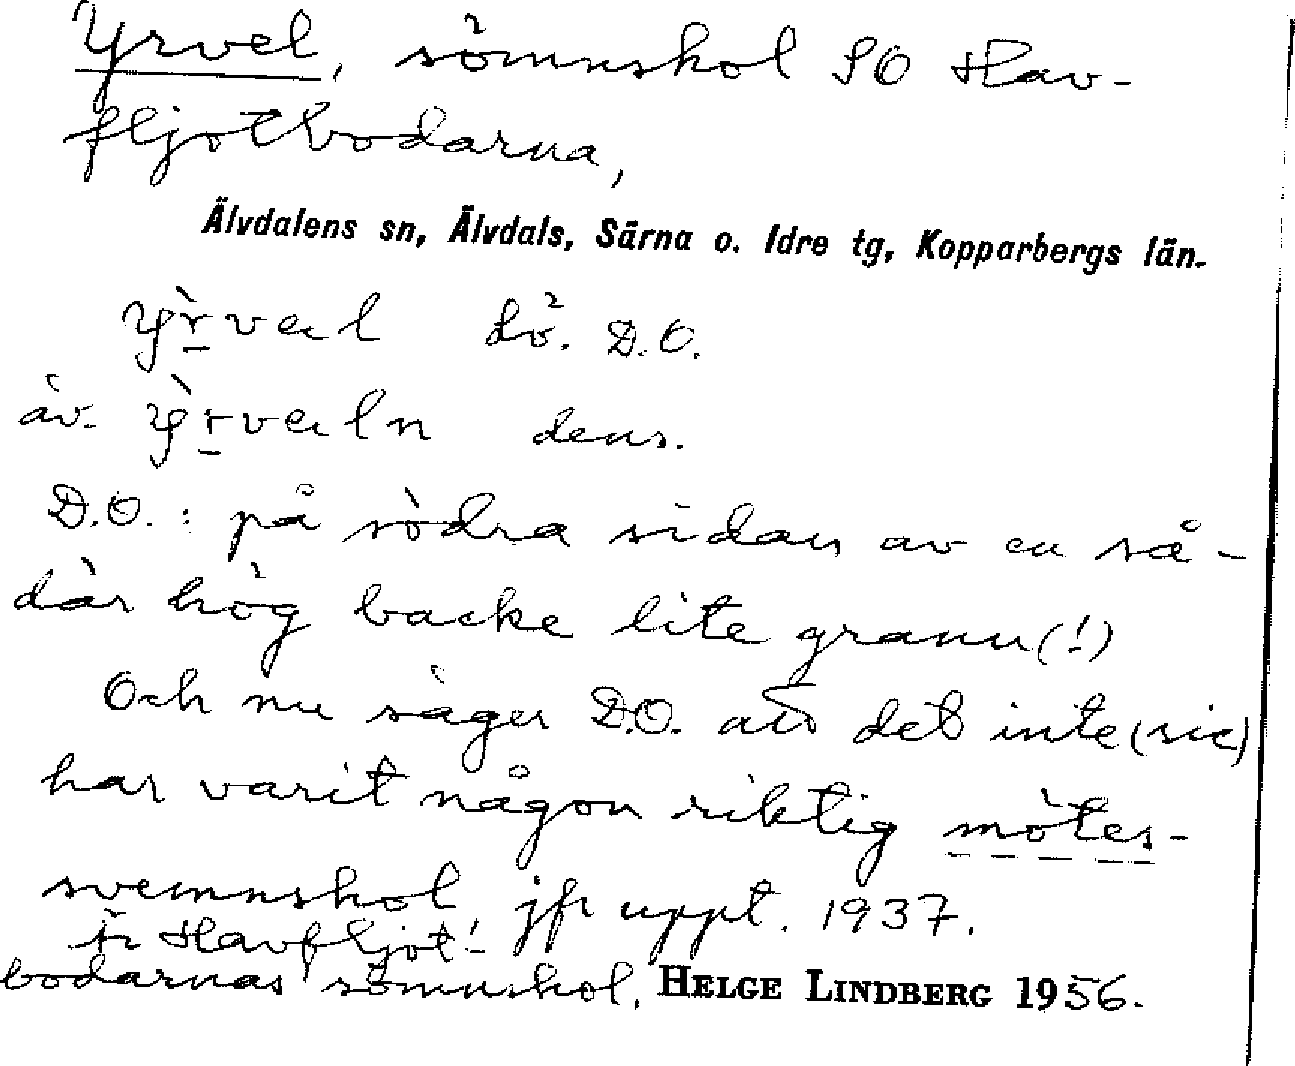 Yrvel, sömnshol SO Hav-
fljotbodarna,
Älvdalens sn, Älvdals, Särna o. Idre tg, Kopparbergs län.
D.O.
äv. dens.
D.O.: på södra sidan av en så-
där hög backe lite grann (!)
Och nu säger D.O. att det inte (sic)
har varit någon riktig mötes-
svemnshol jfr uppt. 1937.
fr Havfljot-
bodarnas sömnshol, HELGE LINDBERG 1956.